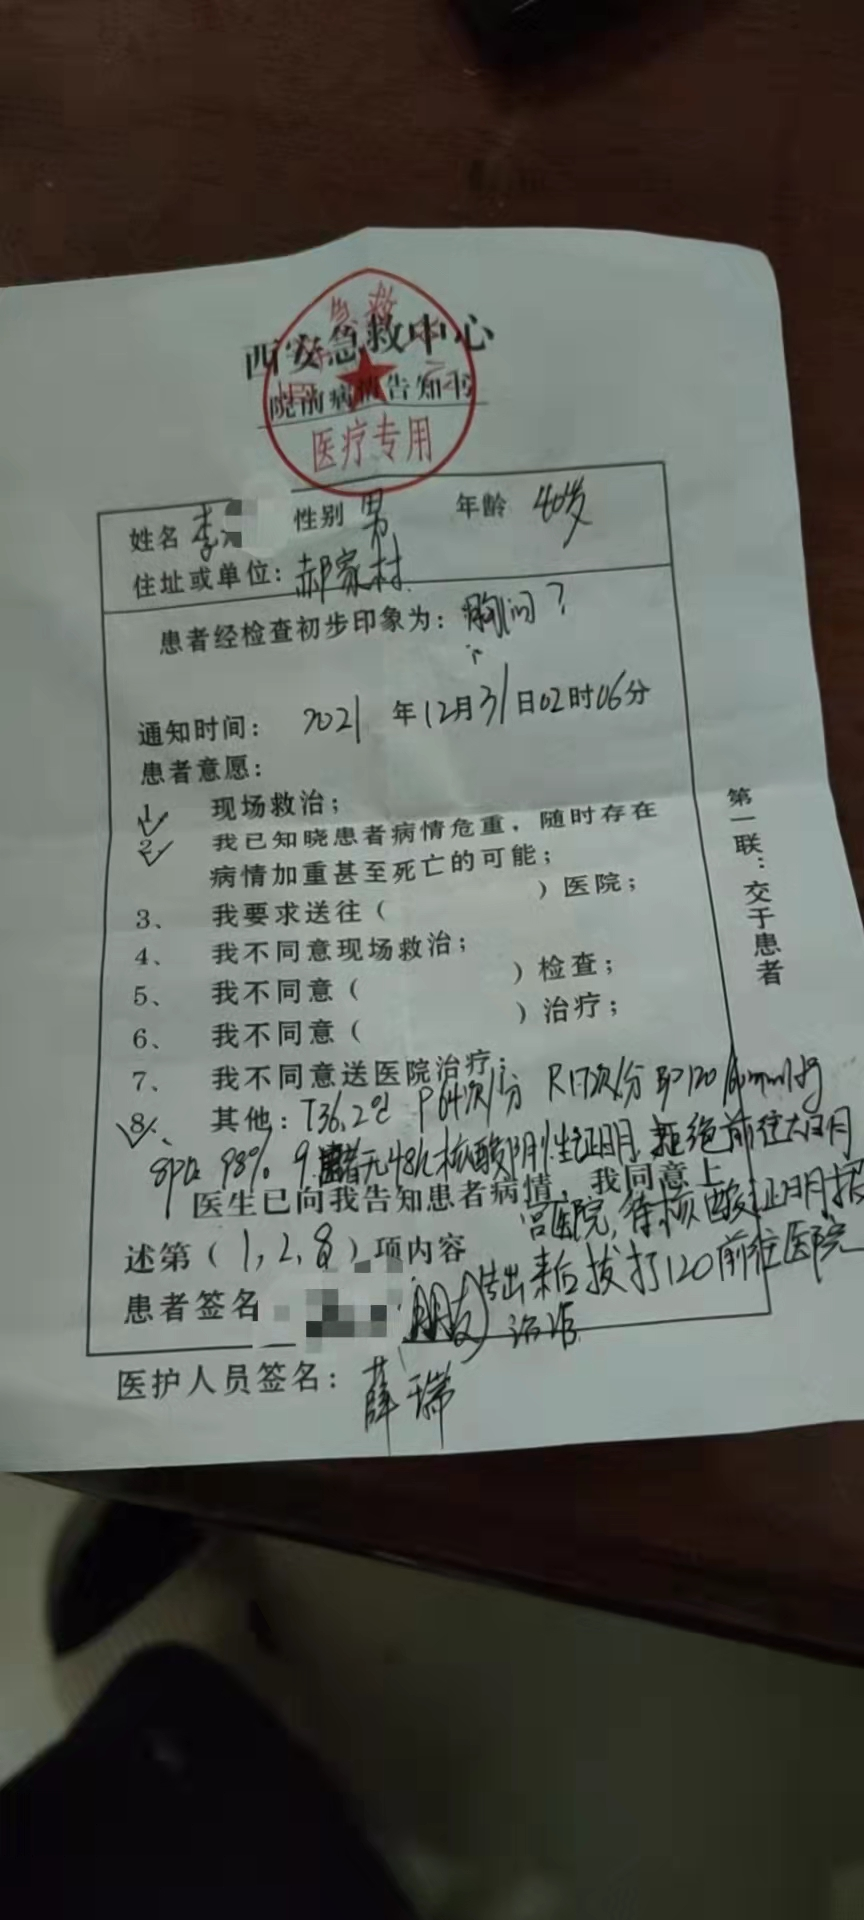 西安急救中心
院前病情告知书
医疗专用
姓名 李 性别 男 年龄 40岁
住址或单位：郝家村
患者经检查初步印象为：胸闷？
通知时间： 2021 年12月31日02时06分
患者意愿：
1、 现场救治；
2、 我已知晓患者病情危重，随时存在
病情加重甚至死亡的可能；
3、 我要求送往（ ）医院；
4、 我不同意现场救治；
5、 我不同意（ ）检查；
6、 我不同意（ ）治疗；
7、 我不同意送医院治疗；
8、 其他：T36.2℃ P64次/分 R17次/分 BP120/ mmHg
SPO2 98% 9.患者无48h核酸阴性证明，拒绝前往
医生已向我告知患者病情，我同意上
医院，待核酸证明报
述第（1,2,8）项内容
告出来后拨打120前往医院
患者签名 （朋友）
治疗
医护人员签名： 薛瑞
第一联：交于患者